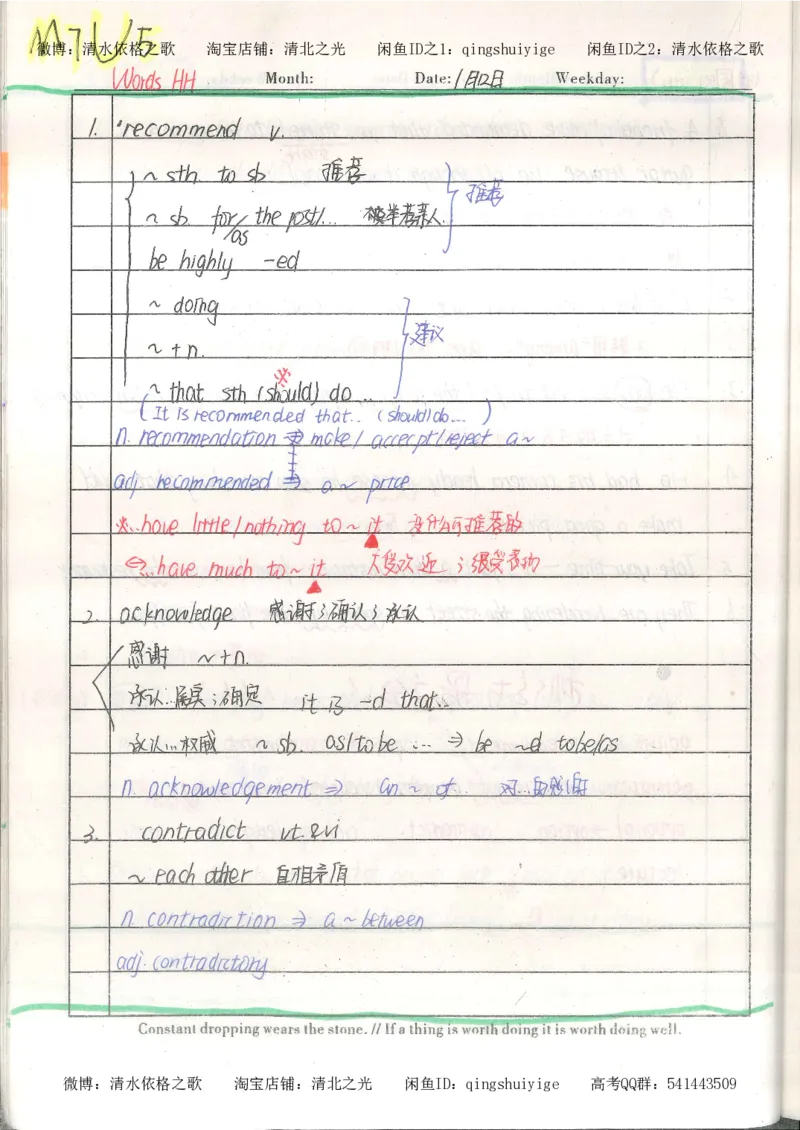 M7U5
微博：清水依格之歌 淘宝店铺：清北之光 闲鱼ID之1：qingshuiyige 闲鱼ID之2：清水依格之歌
Words HH Month: Date: 1月12日 Weekday:
1. recommend v.
~ sth. to sb 推荐
推荐
~ sb. for/as the post/... 荐人
be highly -ed
~ doing
建议
~ + n.
~ that sth (should) do ...
( It is recommended that.. (should) do... )
n. recommendation ⇒ make / accecpt/reject a ~
adj. recommended ⇒ a ~ price
※...have little/nothing to ~ it 没什么可推荐的
⇔...have much to ~ it 大受欢迎；很受
2. acknowledge 感谢；确认；承认
感谢 ~ + n.
承认..属实；确定 it is -d that...
承认...权威 ~ sb. as/to be ... ⇒ be ~d to be/as
n. acknowledgement ⇒ an ~ of. 对...的感谢
3. contradict vt.&vi
~ each other 自相矛盾
n. contradiction ⇒ a ~ between
adj. contradictory
Constant dropping wears the stone. // If a thing is worth doing it is worth doing well.
微博：清水依格之歌 淘宝店铺：清北之光 闲鱼ID：qingshuiyige 高考QQ群：541443509